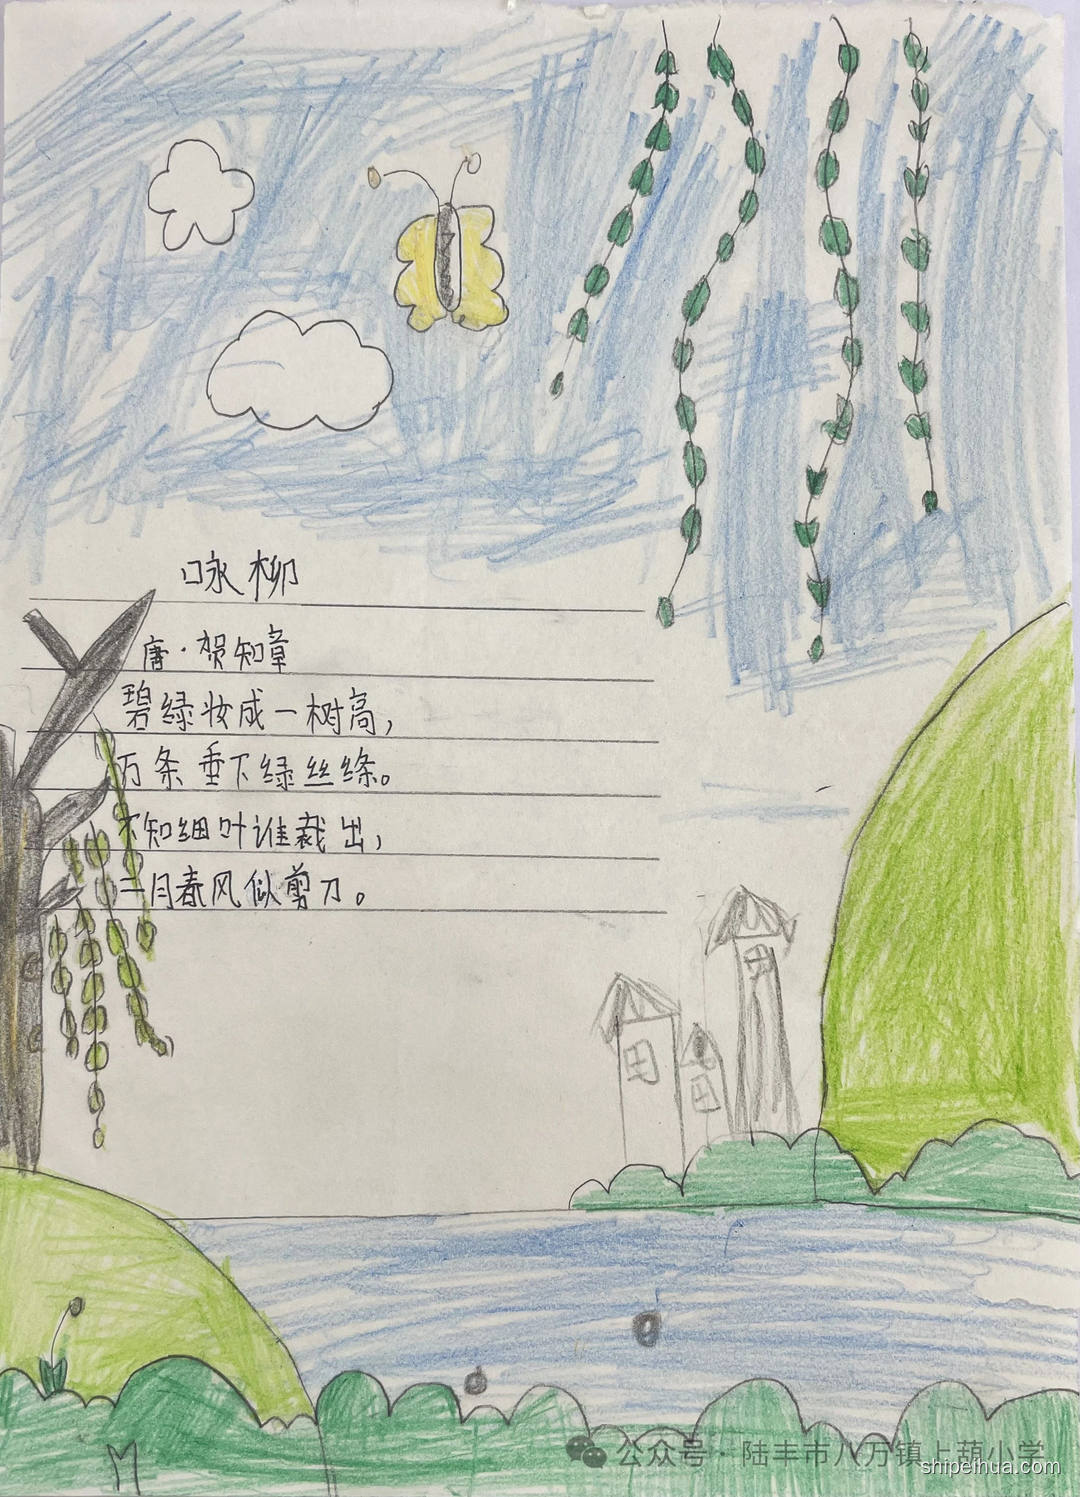 咏柳
唐·贺知章
碧绿妆成一树高,
万条垂下绿丝绦。
不知细叶谁裁出,
二月春风似剪刀。
公众号·陆丰市八万镇上葫小学
shipeihua.com